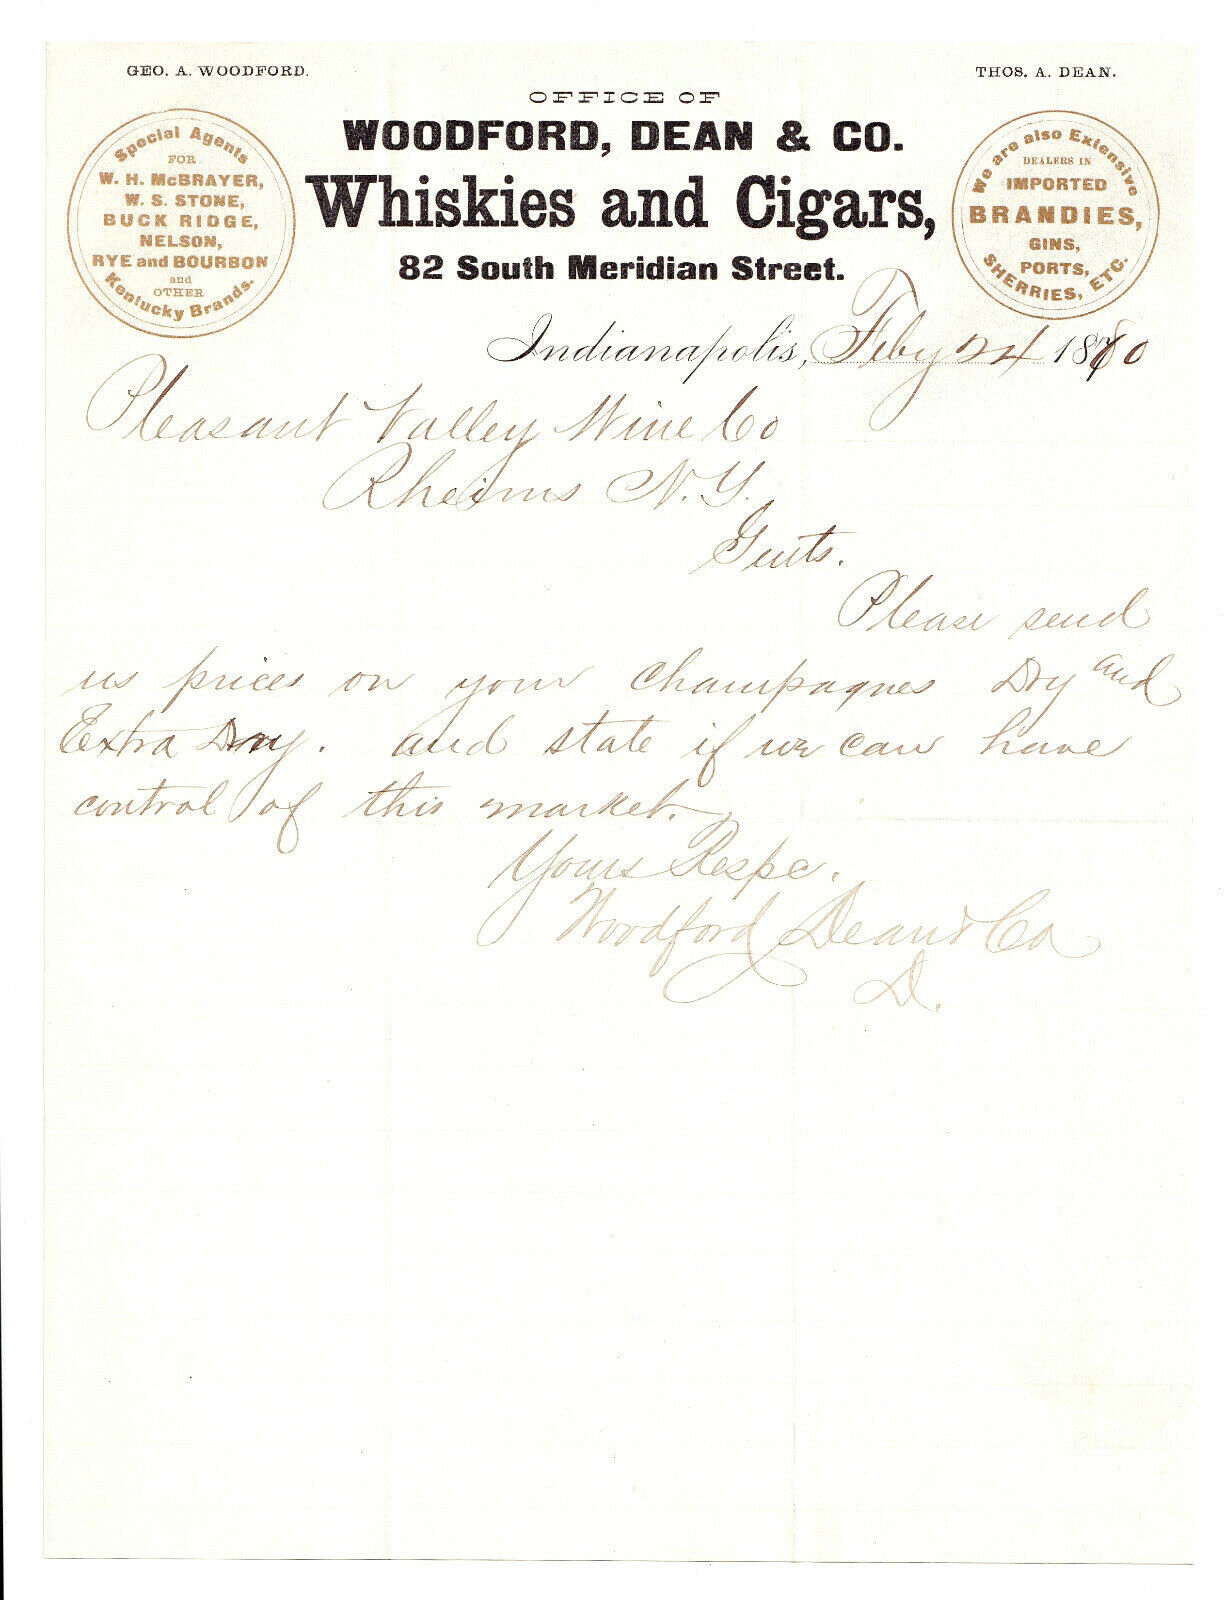 GEO. A. WOODFORD.
THOS. A. DEAN.
OFFICE OF
WOODFORD, DEAN & CO.
Whiskies and Cigars,
82 South Meridian Street.
Special Agents
FOR
W. H. McBRAYER,
W. S. STONE,
BUCK RIDGE,
NELSON,
RYE and BOURBON
and
OTHER
Kentucky Brands.
We are also Extensive
DEALERS IN
IMPORTED
BRANDIES,
GINS,
PORTS,
SHERRIES, ETC.
Indianapolis, Feby 24 1880
Pleasant Valley Wine Co
Rheims N.Y.
Gents.
Please send
us prices on your champagnes Dry and
Extra Dry. and state if we can have
control of this market.
Yours Respc.
Woodford Dean & Co
D.